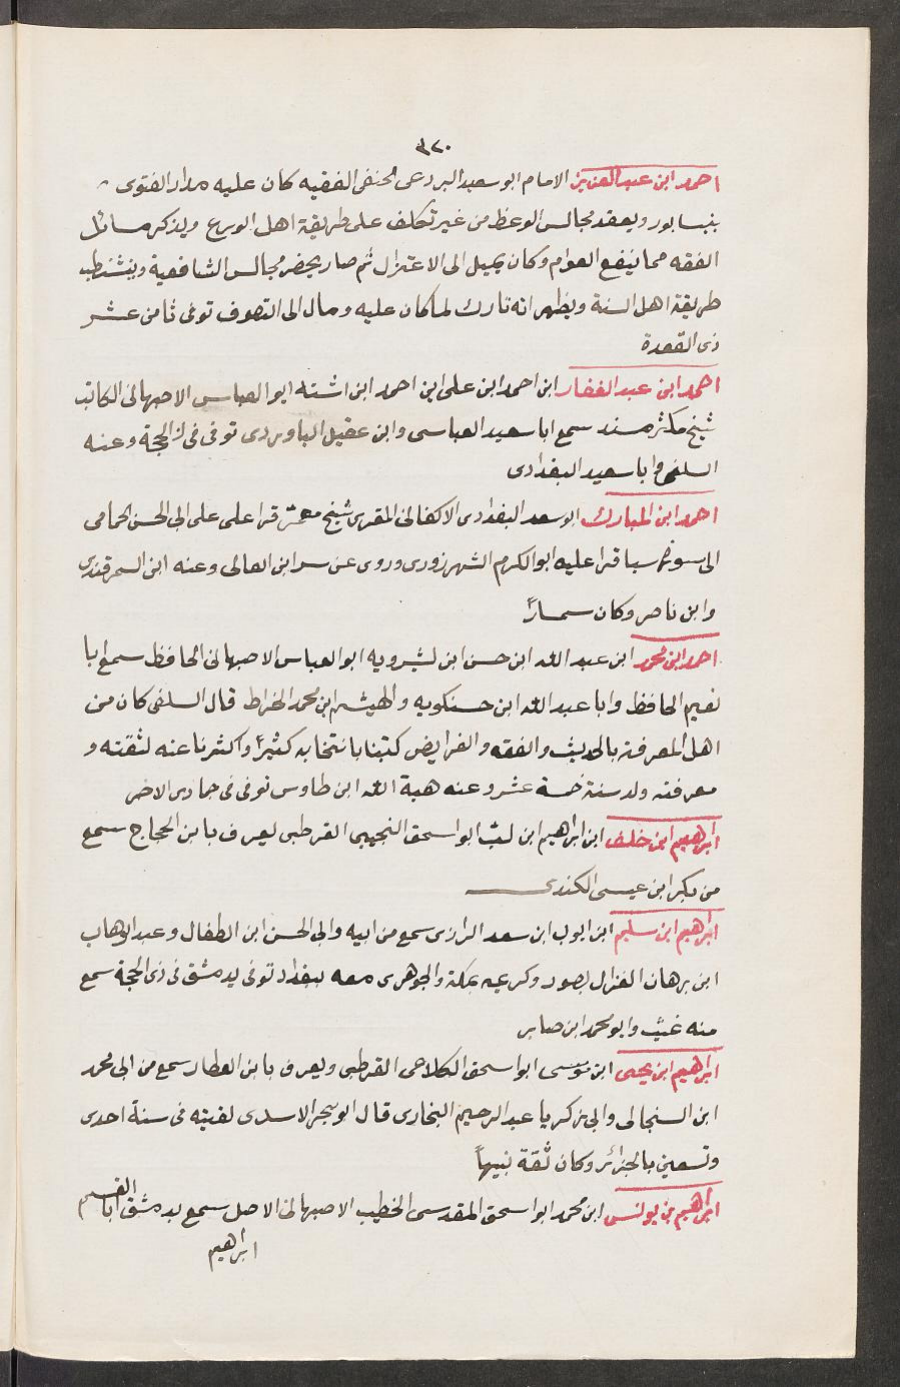 ٣٢٠
احمد ابن عبد العزيز الامام ابو سعيد البردعى الحنفى الفقيه كان عليه مدار الفتوى
بنيسابور ويعقد مجالس الوعظ من غير تكلف على طريقة اهل الورع ويذكر مسائل
الفقه مما ينفع العوام وكان يميل الى الاعتزال ثم صار يحضر مجالس الشافعية
طريقة اهل السنة ويظهر انه تارك لما كان عليه ومال الى التصوف توفى ثامن عشر
ذى القعدة
احمد ابن عبد الغفار ابن احمد ابن على ابن احمد ابن اشته ابو العباس الاصبهانى الكاتب
شيخ مكثر مسند سمع ابا سعيد العباسى وابن عقيل الباوردى توفى فى ذى الحجة وعنه
السلفى وابا سعيد البغدادى
احمد ابن المبارك ابو سعد البغدادى الاكفانى المقرى شيخ معمر قرا على على ابى الحسن الحمامى
الى سورة سبا قرا عليه ابو الكرم الشهرزورى وروى عن ابن العالى وعنه ابن السمرقندى
وابن ناصر وكان سمسارًا
احمد ابن محمد ابن عبد الله ابن حسن ابن لشرويه ابو العباس الاصبهانى الحافظ سمع ابا
نعيم الحافظ وابا عبد الله ابن حسنكويه والهيثم ابن محمد الخراط قال السلفى كان من
اهل المعرفة بالحديث والفقه والفرايض كتبنا بانتخابه كثيرًا واكثرنا عنه لثقته و
معرفته ولد سنة خمسة عشر وعنه هبة الله ابن طاوس توفى فى جمادى الاخر
ابراهيم ابن خلف ابن ابراهيم ابن لب ابو اسحق التجيبى القرطبى يعرف بابن الحجاج سمع
من بكر ابن عيسى الكندى
ابراهيم ابن سليم ابن ايوب ابن سعد الرازى سمع من ابيه وابى الحسن ابن الطفال وعبد الوهاب
ابن برهان الغزال بصور وكريمه بمكة والجوهرى معه ببغداد توفى بدمشق فى ذى الحجة سمع
منه غيث وابو محمد ابن صابر
ابراهيم ابن يحيى ابن موسى ابو اسحق الكلاعى القرطبى ويعرف بابن العطار سمع من ابى محمد
ابن السنجالى وابى زكريا عبد الرحيم البخارى قال ابو بحر الاسدى لقيته فى سنة احدى
وتسعين بالجزائر وكان ثقة نبيهاً
ابراهيم بن يونس ابن محمد ابو اسحق المقدسى الخطيب الاصبهانى الاصل سمع بدمشق ابا القسم
ابراهيم